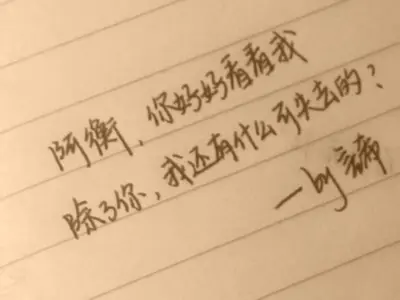 阿衡，你好好看看我
除了你，我还有什么可失去的？
—by 言希